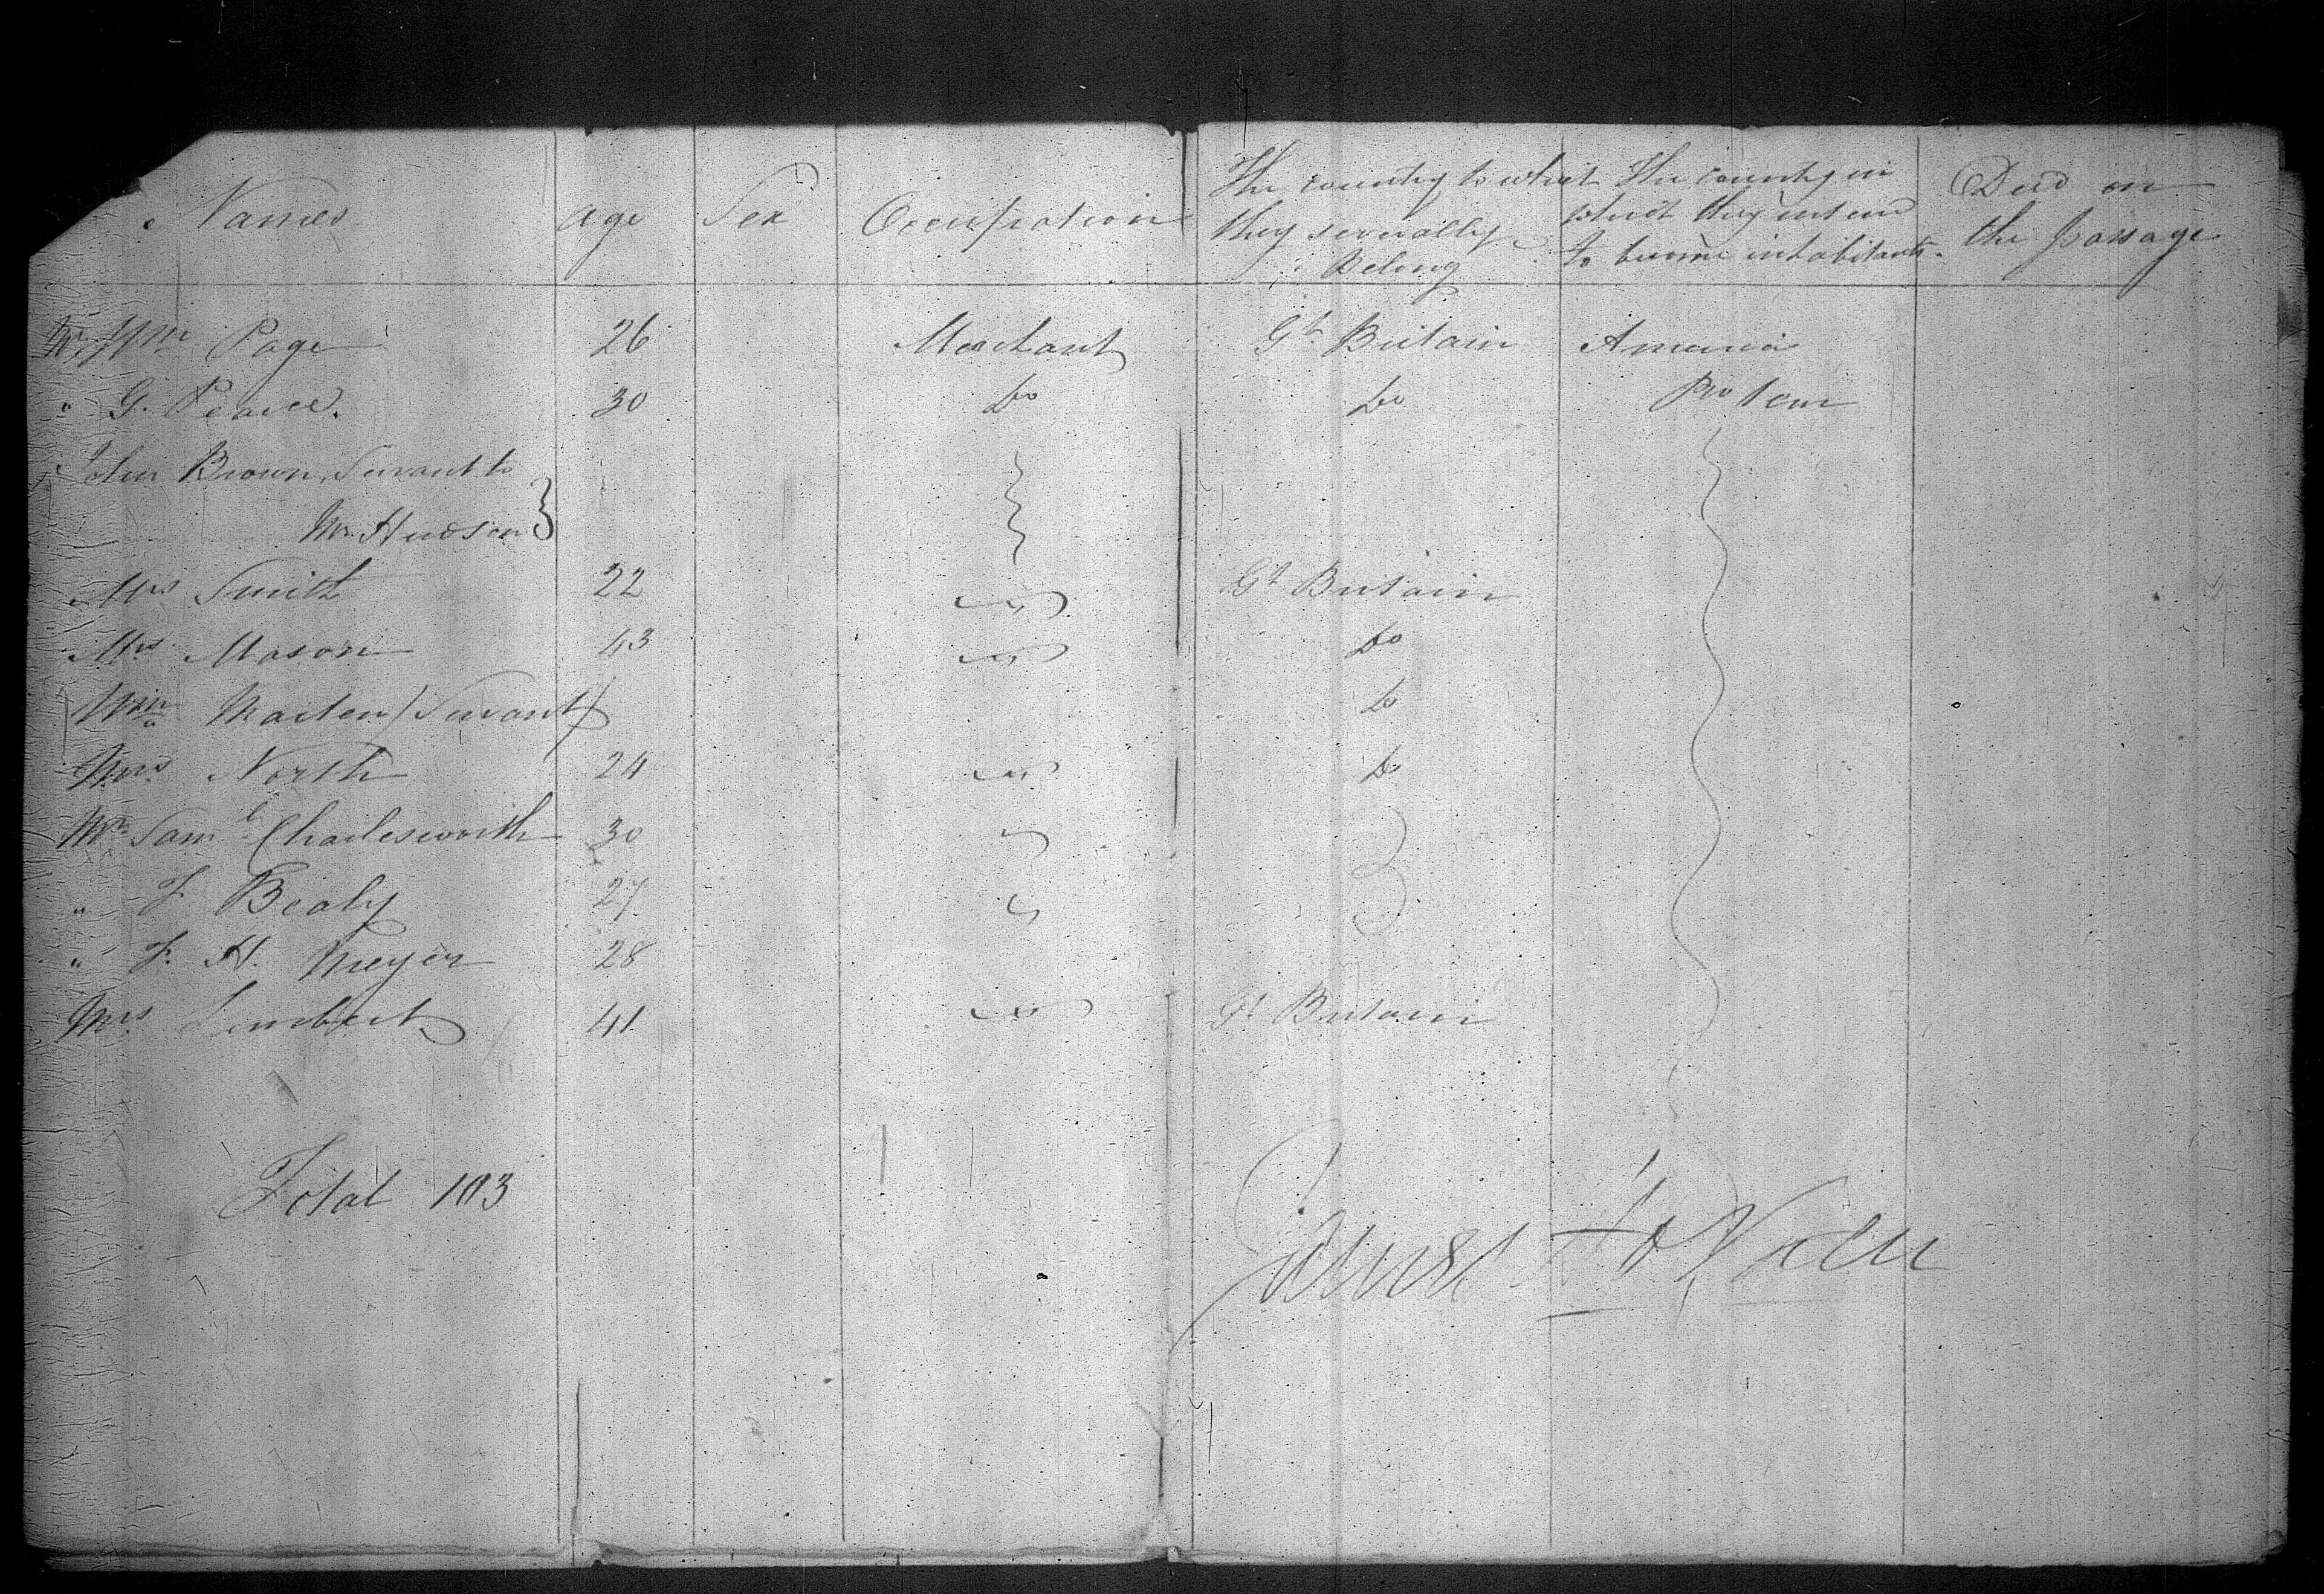 Names age Sex Occupation The country to which they severally Belong The country in which they intend to become inhabitants. Died on the passage
Mr Wm Page 26 Merchant Gt Britain America
" G. Pearce. 30 Do Do Pro tem
John Brown, Servant to
Mr Hudson }
Mrs Smith 22 " Gt Britain
Mrs Mason 43 " Do
Wm Marten (Servant) Do
Mrs North 24 " Do
Mr Saml Charlesworth 30 "
" F Bealy 27 "
" F. H. Meyer 28
Mrs Limbert 41 " Gt Britain
Total 103